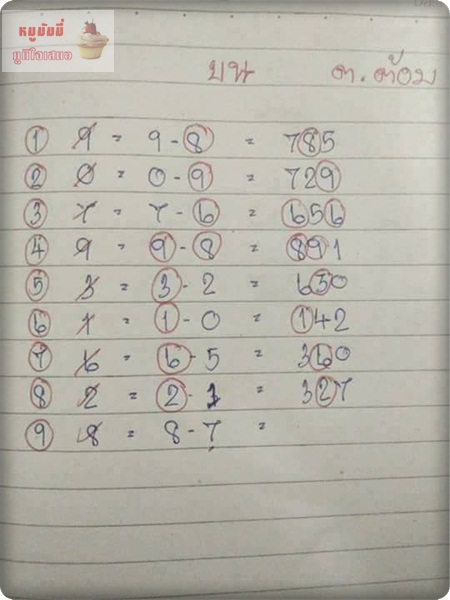 หมูมัมมี่
ภูมิใจเสมอ
บน ต.ต้อม
1 9 = 9-8 = 785
2 0 = 0-9 = 729
3 7 = 7-6 = 656
4 9 = 9-8 = 891
5 3 = 3-2 = 630
6 1 = 1-0 = 142
7 6 = 6-5 = 360
8 2 = 2-1 = 327
9 8 = 8-7 =